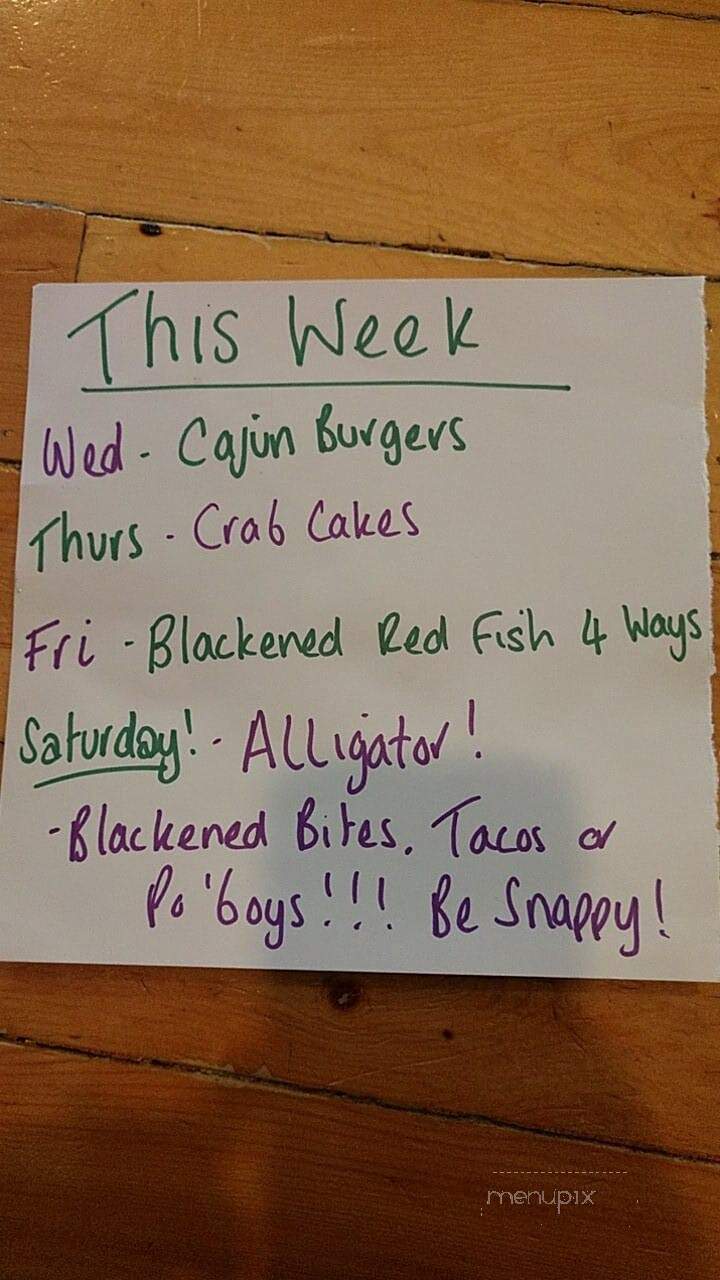 This Week
Wed - Cajun Burgers
Thurs - Crab Cakes
Fri - Blackened Red Fish 4 Ways
Saturday! - Alligator!
- Blackened Bites. Tacos or
Po'boys!!! Be Snappy!
menupix